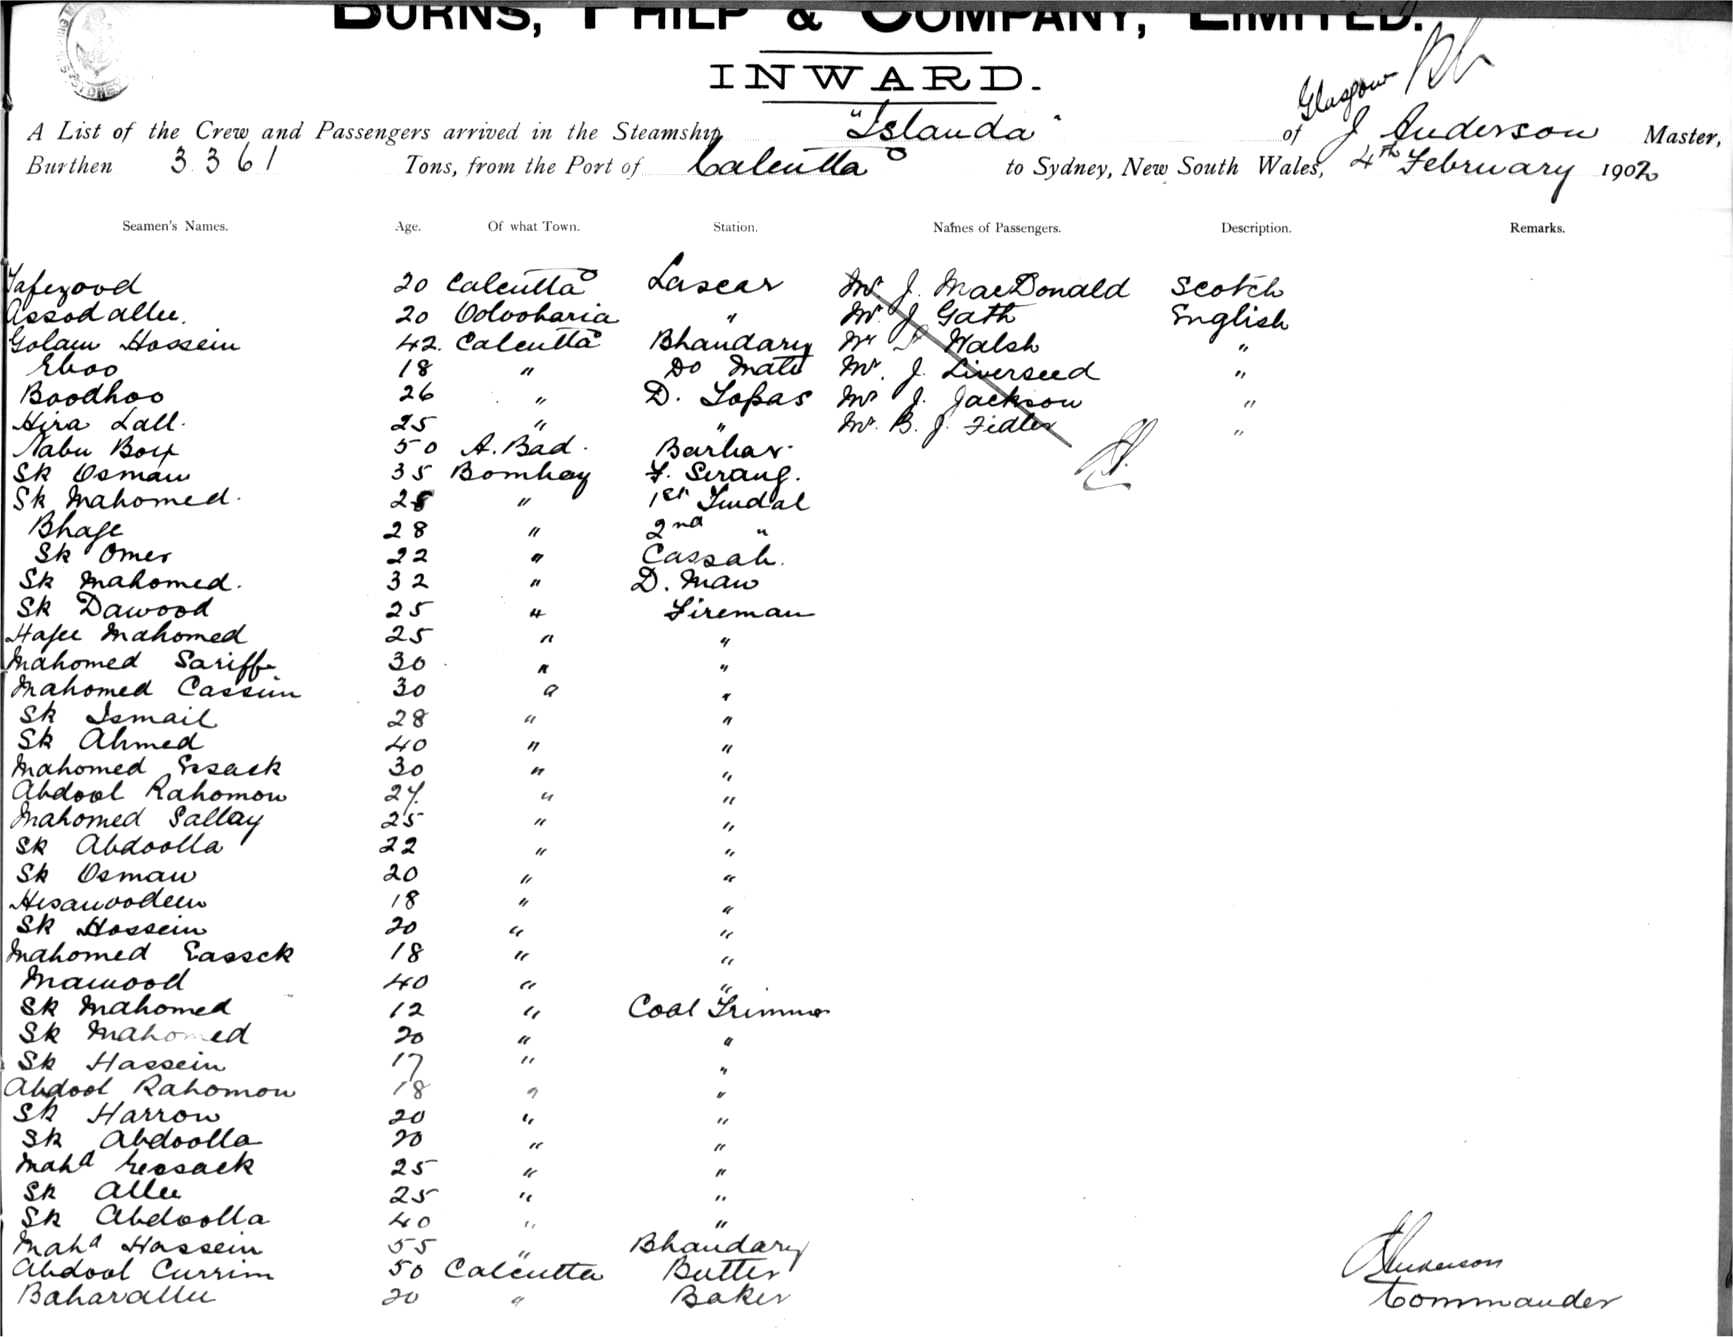 BURNS, PHILP & COMPANY, LIMITED.
INWARD.
A List of the Crew and Passengers arrived in the Steamship "Islanda" of Glasgow J Anderson Master,
Burthen 3361 Tons, from the Port of Calcutta to Sydney, New South Wales, 4th February 1902
Seamen's Names. Age. Of what Town. Station. Names of Passengers. Description. Remarks.
Tafezood 20 Calcutta Lascar Mr J. MacDonald Scotch
Assodallee. 20 Ooloobaria " Mr. J Gath English
Golam Hossein 42. Calcutta Bhandary Mr Walsh "
Eboo 18 " Do Mate Mr. J. Liverseed "
Boodhoo 26 " D. Topas Mr J. Jackson "
Hira Lall. 25 " " Mr. B. J. Fidler "
Nabu Box 50 A. Bad. Barbar.
Sk Osman 35 Bombay F. Serang.
Sk Mahomed. 28 " 1st Tindal
Bhaje 28 " 2nd "
Sk Omer 22 " Cassab.
Sk Mahomed. 32 " D. Man
Sk Dawood 25 " Fireman
Hajee Mahomed 25 " "
Mahomed Sariff 30 " "
Mahomed Cassim 30 " "
Sk Ismail 28 " "
Sk Ahmed 40 " "
Mahomed Essack 30 " "
Abdool Rahomon 27. " "
Mahomed Sallay 25 " "
Sk Abdoolla 22 " "
Sk Osman 20 " "
Hisamoodeen 18 " "
Sk Hossein 20 " "
Mahomed Eassck 18 " "
Mamood 40 " "
Sk Mahomed 12 " Coal Trimmer
Sk Mahomed 20 " "
Sk Hassein 17 " "
Abdool Rahomon 18 " "
Sk Harron 20 " "
Sk Abdoolla 20 " "
Mahd Eessack 25 " "
Sk Allee 25 " "
Sk Abdoolla 40 " "
Mahd Hassein 55 " Bhandary
Abdool Currim 50 Calcutta Butler
Baharallee 20 " Baker
J Anderson
Commander